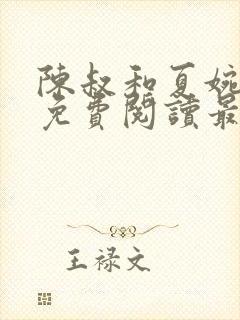 陳叔和夏婉
免費閱讀最
王禄文